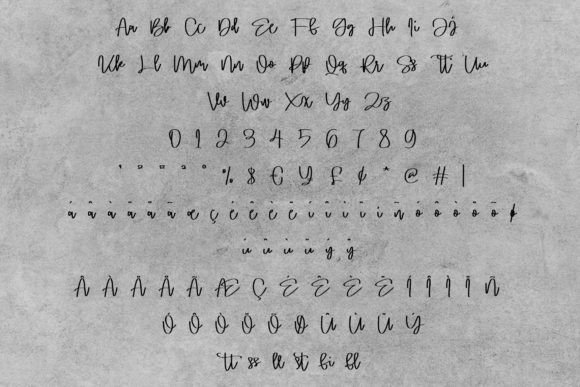 Aa Bb Cc Dd Ee Ff Gg Hh Ii Jj
Kk Ll Mm Nn Oo Pp Qq Rr Ss Tt Uu
Vv Ww Xx Yy Zz
0 1 2 3 4 5 6 7 8 9
% $ € ¥ £ ¢ * @ # |
á â à ä å ã æ ç é ê è ë í î ì ï ı ñ ó ô ò ö õ ø
ú û ù ü ý ÿ
Â À Á Ä Å Ã Æ Ç É Ê È Ë Í Î Ì Ï Ñ
Ó Ô Ò Ö Õ Ø Û Ù Ü Ý
tt ss ll st fi fl